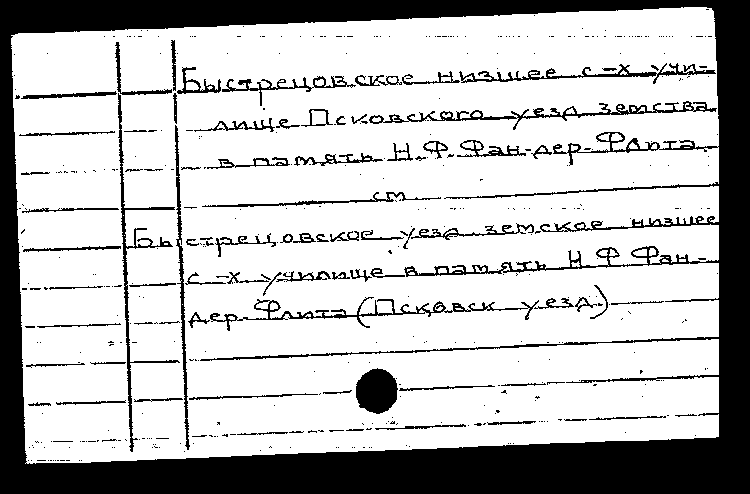 Быстрецовское низшее с-х учи-
лище Псковского уезд земства
в память Н.Ф. Фан-дер-Флита.
см.
Быстрецовское уезд. земское низшее
с-х училище в память Н Ф Фан-
дер-Флита (Псковск уезд.)